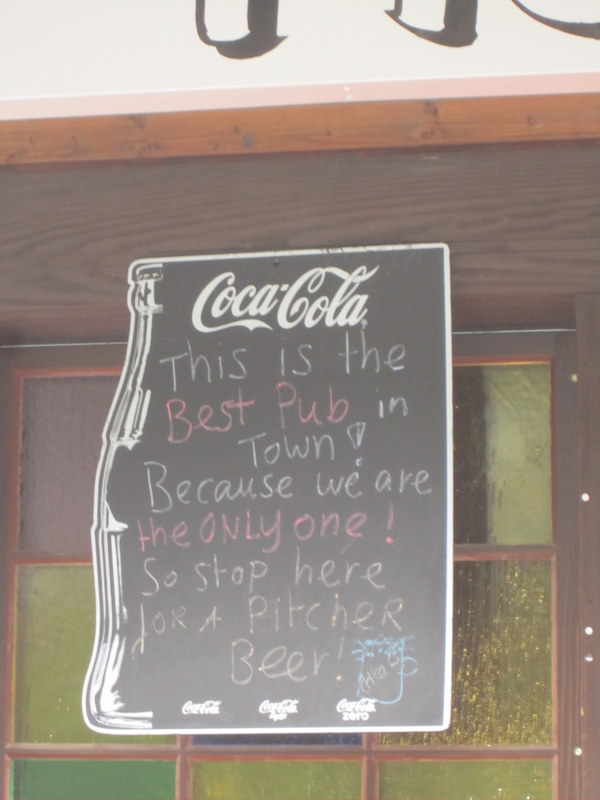 Coca-Cola
This is the
Best Pub in
Town!
Because we are
the ONLY one!
So stop here
for A Pitcher
Beer!
Coca-Cola
Coca-Cola
Coca-Cola
zero